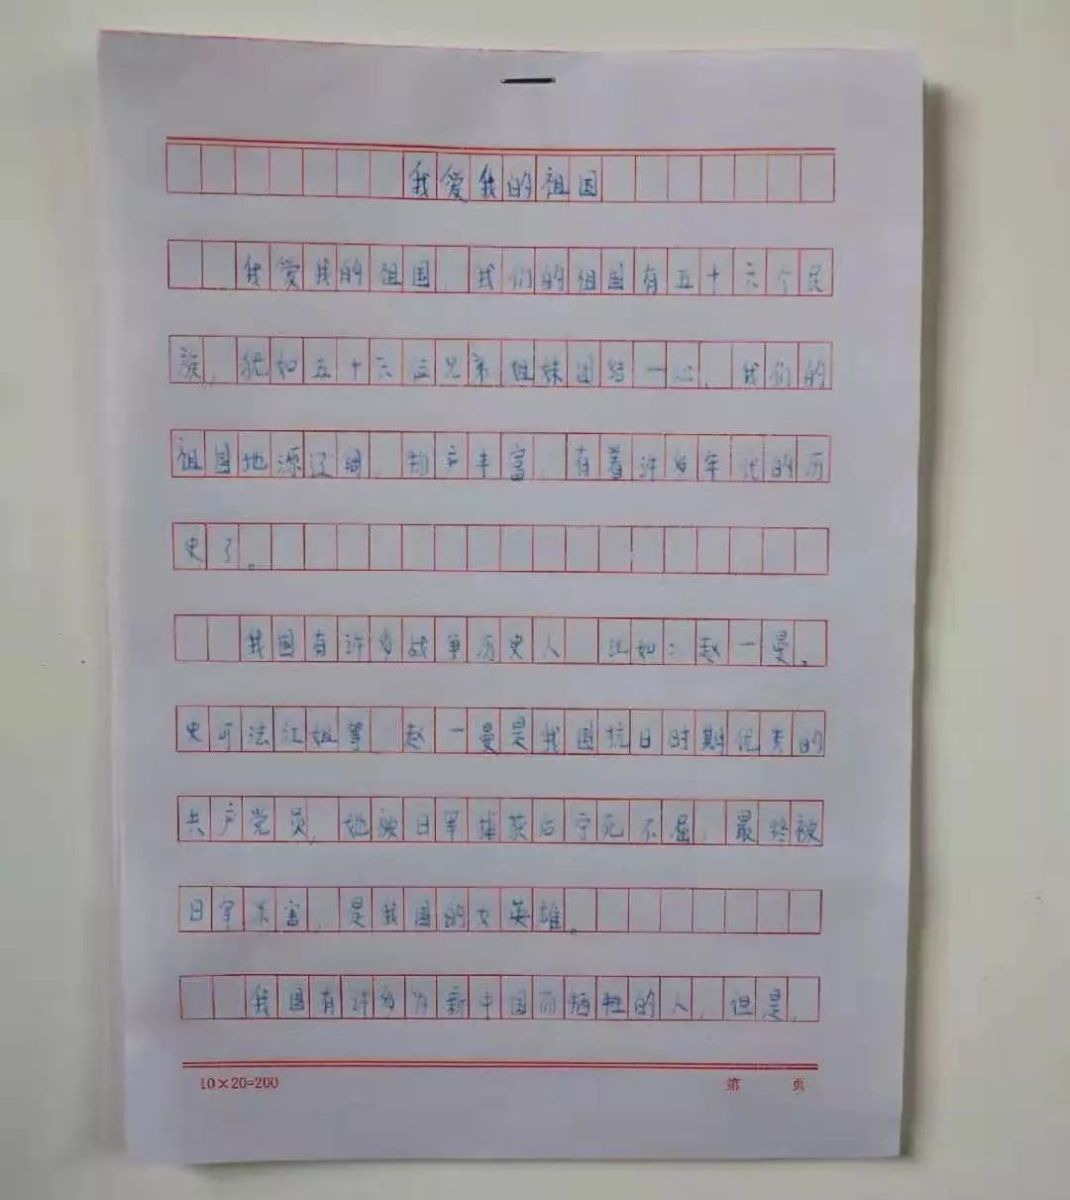 我爱我的祖国
我爱我的祖国,我们的祖国有五十六个民
族,犹如五十六位兄弟姐妹团结一心,我们的
祖国地源辽阔,物产丰富,有着许多年代的历
史了。
我国有许多战争历史人 比如:赵一曼、
史可法江姐等 赵一曼是我国抗日时期优秀的
共产党员,她被日军捕获后宁死不屈,最终被
日军杀害,是我国的女英雄。
我国有许多为新中国而牺牲的人,但是,
10×20=200
第 页